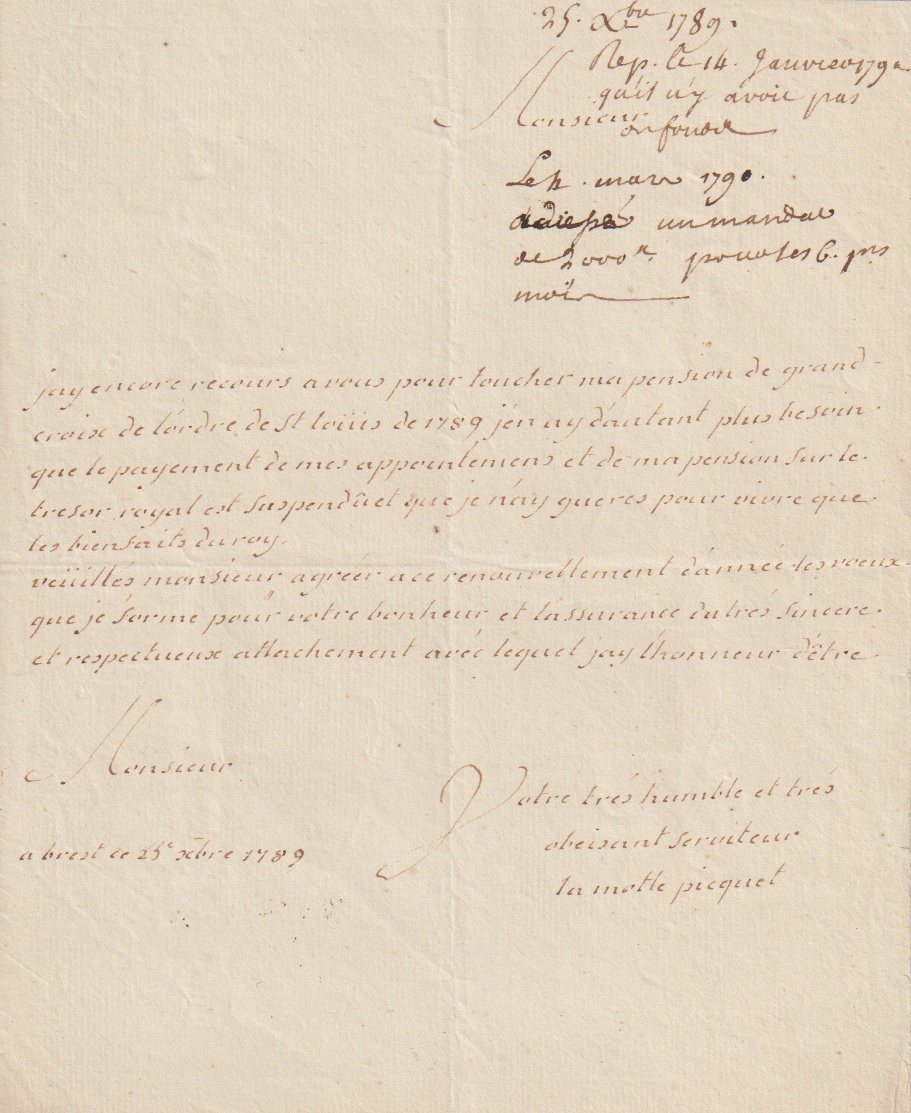 25. Xbre 1789.
Rep. le 14. Janvier 1790
qu'il n'y avoit pas
Monsieur
de fonds
Le 11. mars 1790.
adressé un mandat
de 2000ᵗᵗ. pour les 6. prs
mois
jay encore recours a vous pour toucher ma pension de grand-
croix de l'ordre de St loüis de 1789 j'en ay d'autant plus besoin
que le payement de mes appointemens et de ma pension sur le
tresor royal est suspendû et que je n'ay gueres pour vivre que
les bienfaits du roy.
veüillés monsieur agréer a ce renouvellement d'année les voeux
que je forme pour votre bonheur et l'assurance du trés sincere
et respectueux attachement avéc lequel jay l'honneur d'être
Monsieur
Votre trés humble et trés
obeisant serviteur
a brest ce 25e xbre 1789
la motte picquet